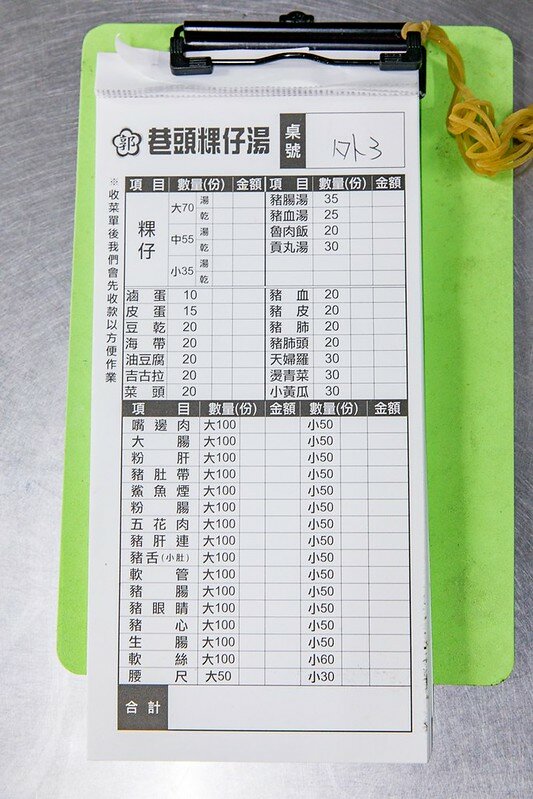 郭 巷頭粿仔湯 桌號 外3
※收菜單後我們會先收款以方便作業
項目 數量(份) 金額 項目 數量(份) 金額
粿仔 大70 湯 乾 豬腸湯 35
豬血湯 25
中55 湯 乾 魯肉飯 20
貢丸湯 30
小35 湯 乾
滷蛋 10 豬血 20
皮蛋 15 豬皮 20
豆乾 20 豬肺 20
海帶 20 豬肺頭 20
油豆腐 20 天婦羅 30
吉古拉 20 燙青菜 30
菜頭 20 小黃瓜 30
項目 數量(份) 金額 數量(份) 金額
嘴邊肉 大100 小50
大腸 大100 小50
粉肝 大100 小50
豬肚帶 大100 小50
鯊魚煙 大100 小50
粉腸 大100 小50
五花肉 大100 小50
豬肝連 大100 小50
豬舌(小肚) 大100 小50
軟管 大100 小50
豬腸 大100 小50
豬眼睛 大100 小50
豬心 大100 小50
生腸 大100 小50
軟絲 大100 小60
腰尺 大50 小30
合計